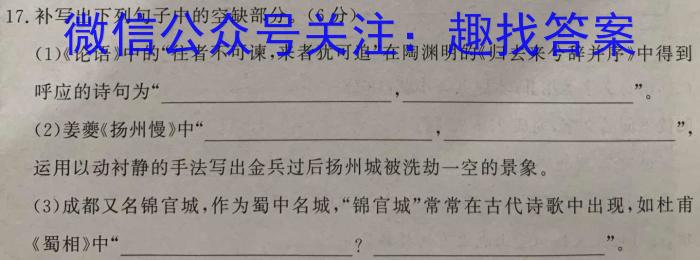 17.补写出下列句子中的空缺部分。(6分)
微信公众号关注：趣找答案
(1)《论语》中的“往者不可谏,来者犹可追”在陶渊明的《归去来兮辞并序》中得到
呼应的诗句为“____,____”。
(2)姜夔《扬州慢》中“____,____”,
运用以动衬静的手法写出金兵过后扬州城被洗劫一空的景象。
(3)成都又名锦官城,作为蜀中名城,“锦官城”常常在古代诗歌中出现,如杜甫
《蜀相》中“____?____”。